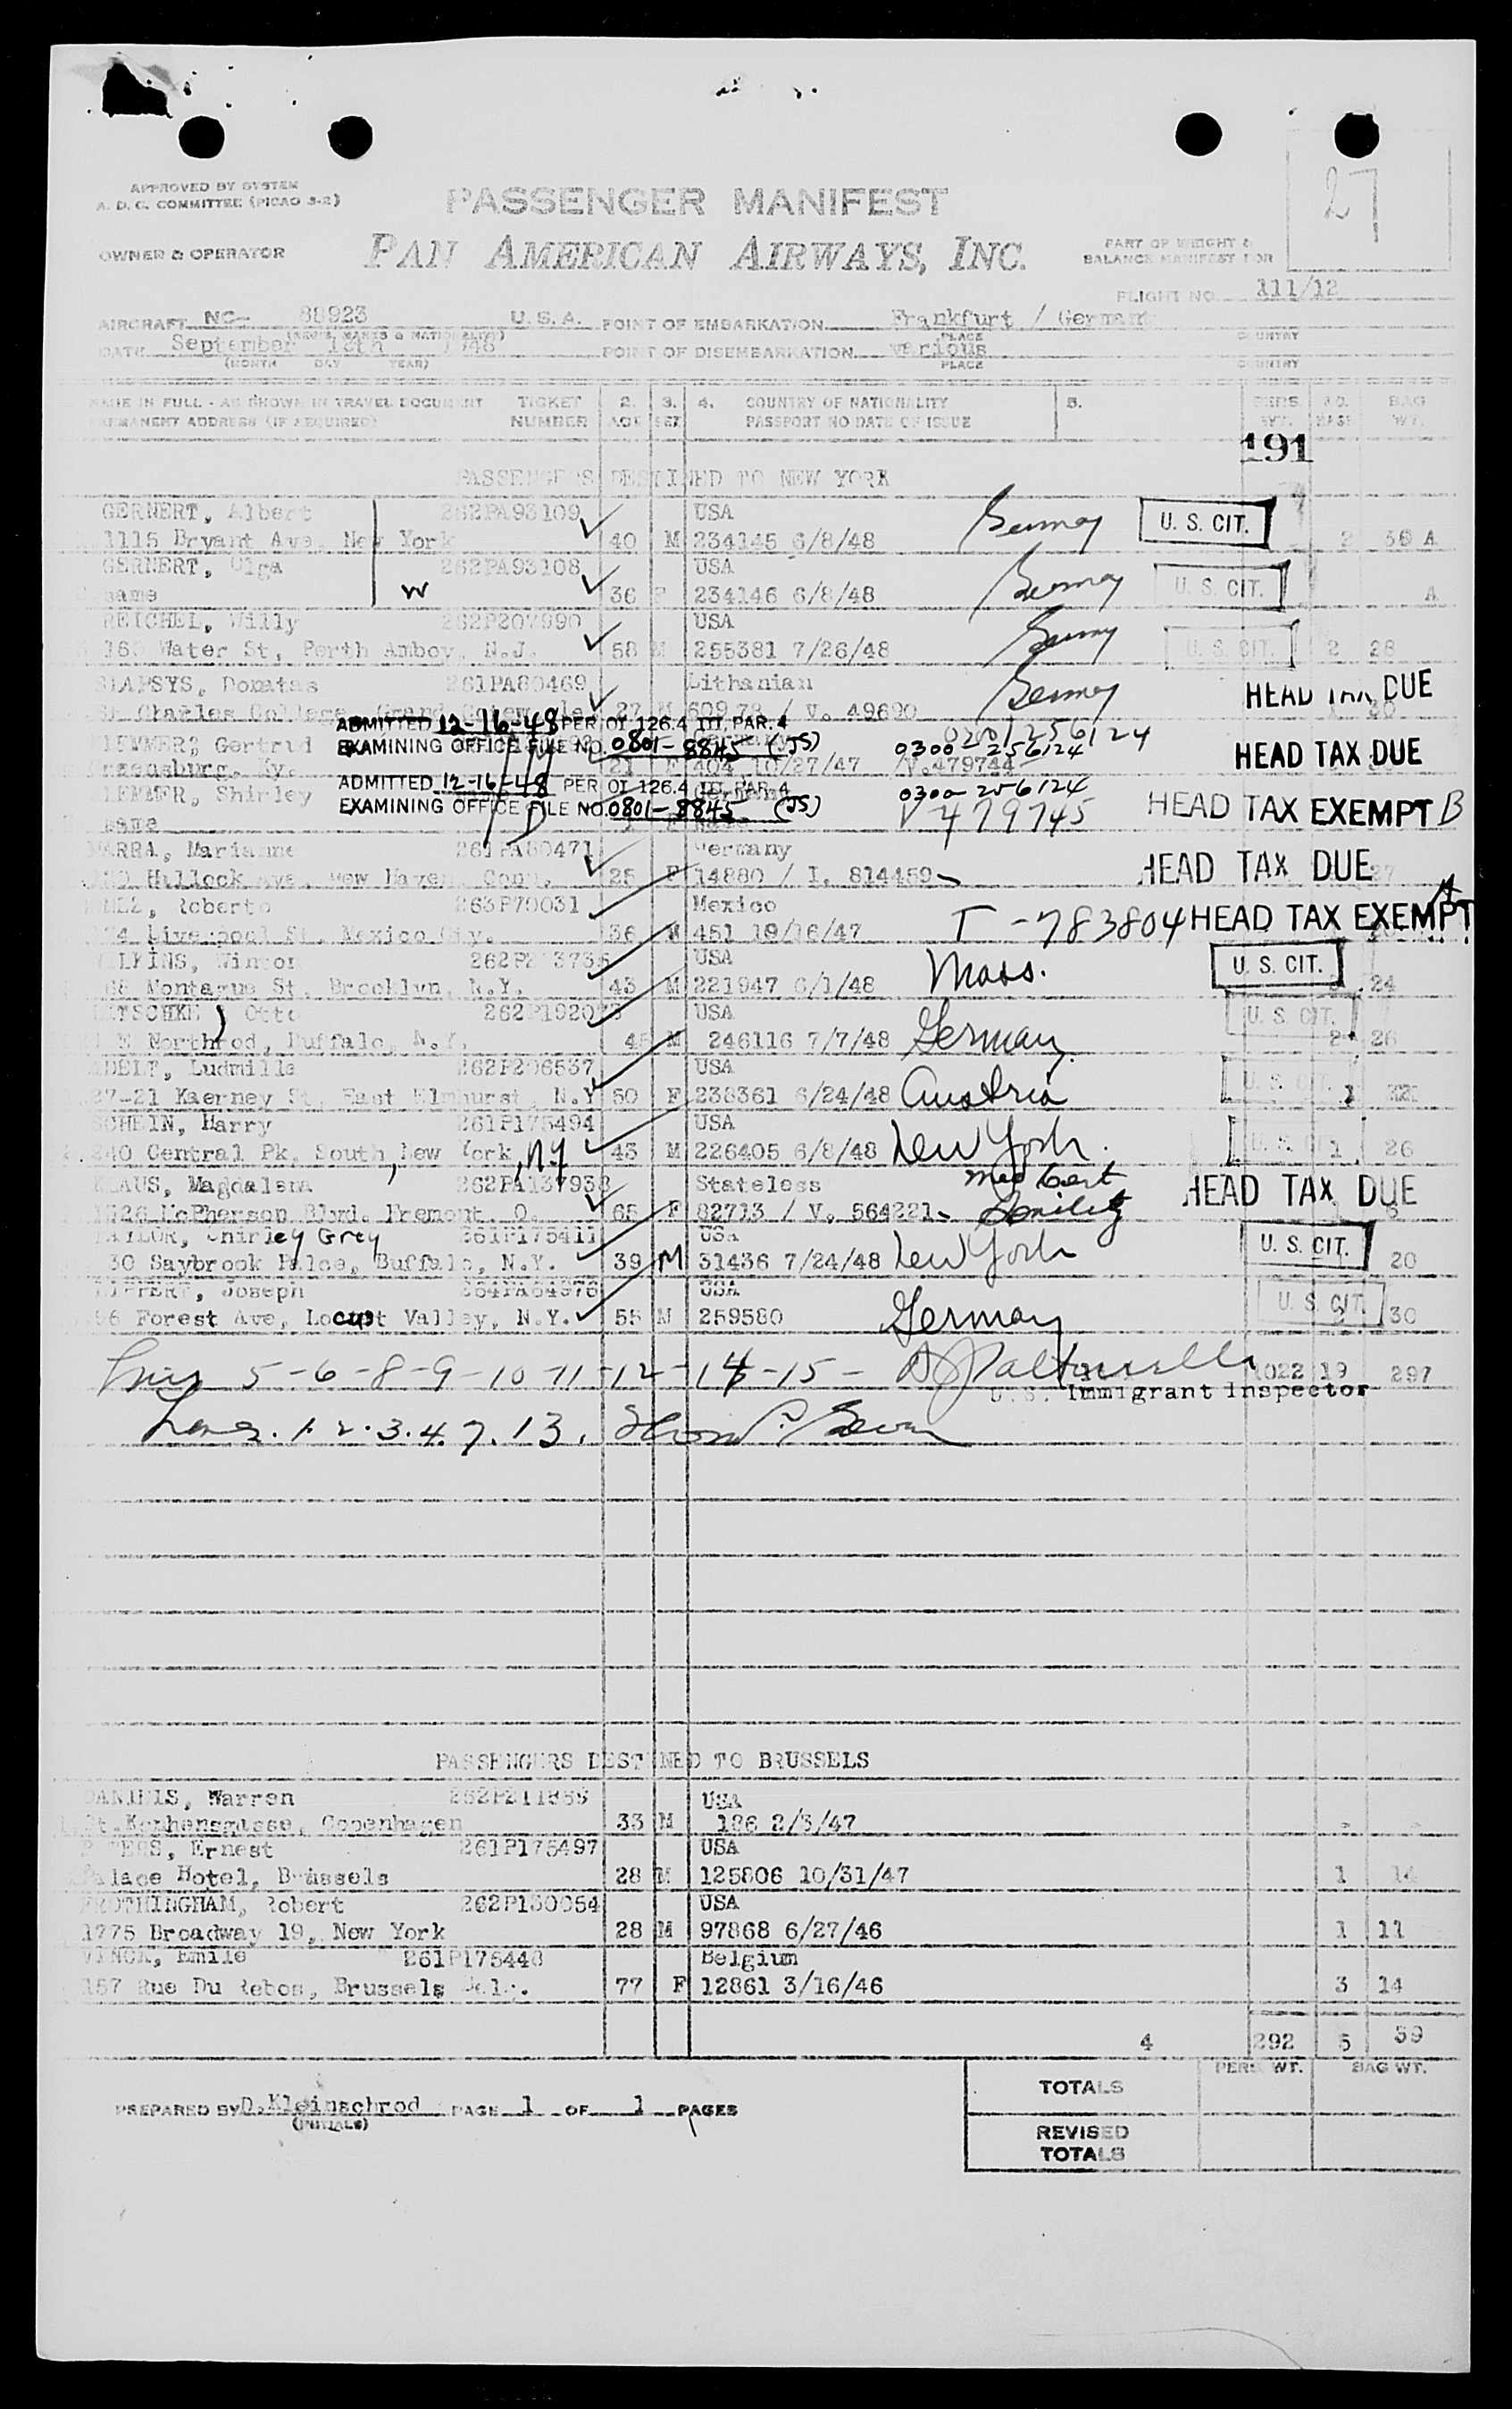 27
APPROVED BY SYSTEM
A. D. C. COMMITTEE (PICAO 3-2)
PASSENGER MANIFEST
OWNER & OPERATOR
PAN AMERICAN AIRWAYS, INC.
PART OF WEIGHT &
BALANCE MANIFEST FOR
FLIGHT NO. 111/12
AIRCRAFT NC- 88923 U.S.A. POINT OF EMBARKATION Frankfurt / Germany
PLACE COUNTRY
DATE September 1948 POINT OF DISEMBARKATION various
(MONTH DAY YEAR) PLACE COUNTRY
NAME IN FULL - AS SHOWN IN TRAVEL DOCUMENT TICKET 2. 3. 4. COUNTRY OF NATIONALITY 5. PERS NO. BAG
PERMANENT ADDRESS (IF REQUIRED) NUMBER AGE SEX PASSPORT NO DATE OF ISSUE WT. BAGS WT.
191
PASSENGERS DESTINED TO NEW YORK
GERNERT, Albert 262PA93109 USA
1115 Bryant Ave. New York 40 M 234145 6/8/48 Germany U. S. CIT. 2 A
GERNERT, Olga 262PA93108 USA
same W 36 F 234146 6/8/48 Germany U. S. CIT. A
REICHEL, Willy 262P207990 USA
Water St, Perth Amboy, N.J. 58 M 255381 7/26/48 Germany U. S. CIT. 2 28
SLAPSYS, Domatas 261PA80469 Lithanian
St Charles 27 M 60978 / V. 49690 Germany HEAD TAX DUE
ADMITTED 12-16-48 PER OI 126.4 III, PAR. 4
0300 256124
Gertrud EXAMINING OFFICE FILE NO. 0801-8845 (JS) 0300 256124 HEAD TAX DUE
Greensburg, Ky. 21 F 404 10/27/47 / V.479744
ADMITTED 12-16-48 PER OI 126.4 III, PAR. 4
Shirley EXAMINING OFFICE FILE NO. 0801-8845 (JS) 0300-256124
same V 479745 HEAD TAX EXEMPT B
Marianne 261PA80471 Germany
Hallock Ave. New Haven, Conn. 25 F 14880 / I. 814459 HEAD TAX DUE 27
Roberto 263P79031 Mexico
Liverpool St. Mexico City. 36 M 451 19/16/47 T-783804 HEAD TAX EXEMPT A
Winton USA
Montague St. Brooklyn, N.Y. 43 M 221947 6/1/48 Mass. U. S. CIT. 24
Otto USA
Northrod, Buffalo, N.Y. M 246116 7/7/48 Germany U. S. CIT. 2 26
Ludmilla 262P206537 USA
27-21 Kaerney St, East Elmhurst, N.Y 50 F 238361 6/24/48 Austria U. S. CIT. 1
SCHEIN, Harry 261P175494 USA
240 Central Pk. South, New York, N.Y 43 M 226405 6/8/48 New York. U. S. 1 26
KLAUS, Magdalena 262PA137938 Stateless Med Cert
1526 McPherson Blvd. Fremont, O. 65 F 82713 / V. 564221 Senility HEAD TAX DUE
TAYLOR, Shirley Grey 261P175411 USA
30 Saybrook Palce, Buffalo, N.Y. 39 M 31436 7/24/48 New York U. S. CIT. 20
Joseph 264PA64976 USA
Forest Ave, Locust Valley, N.Y. 55 M 259580 Germany U. S. CIT. 30
5-6-8-9-10-11-12-14-15- 1022 19 297
U.S. Immigrant Inspector
Lines. 1. 2. 3. 4. 7. 13.
PASSENGERS DESTINED TO BRUSSELS
DANIELS, Warren USA
Copenhagen 33 M 186 2/3/47
Ernest 261P175497 USA
Palace Hotel, Brussels 28 M 125806 10/31/47 1 14
FROTHINGHAM, Robert 262P130054 USA
1775 Broadway 19, New York 28 M 97868 6/27/46 1 11
VINCK, Emile 261P175448 Belgium
157 Rue Du Brussels Belg. 77 F 12861 3/16/46 3 14
4 292 5 39
PERS. WT. BAG WT.
TOTALS
PREPARED BY D.Kleinschrod PAGE 1 OF 1 PAGES
(INITIALS)
REVISED
TOTALS